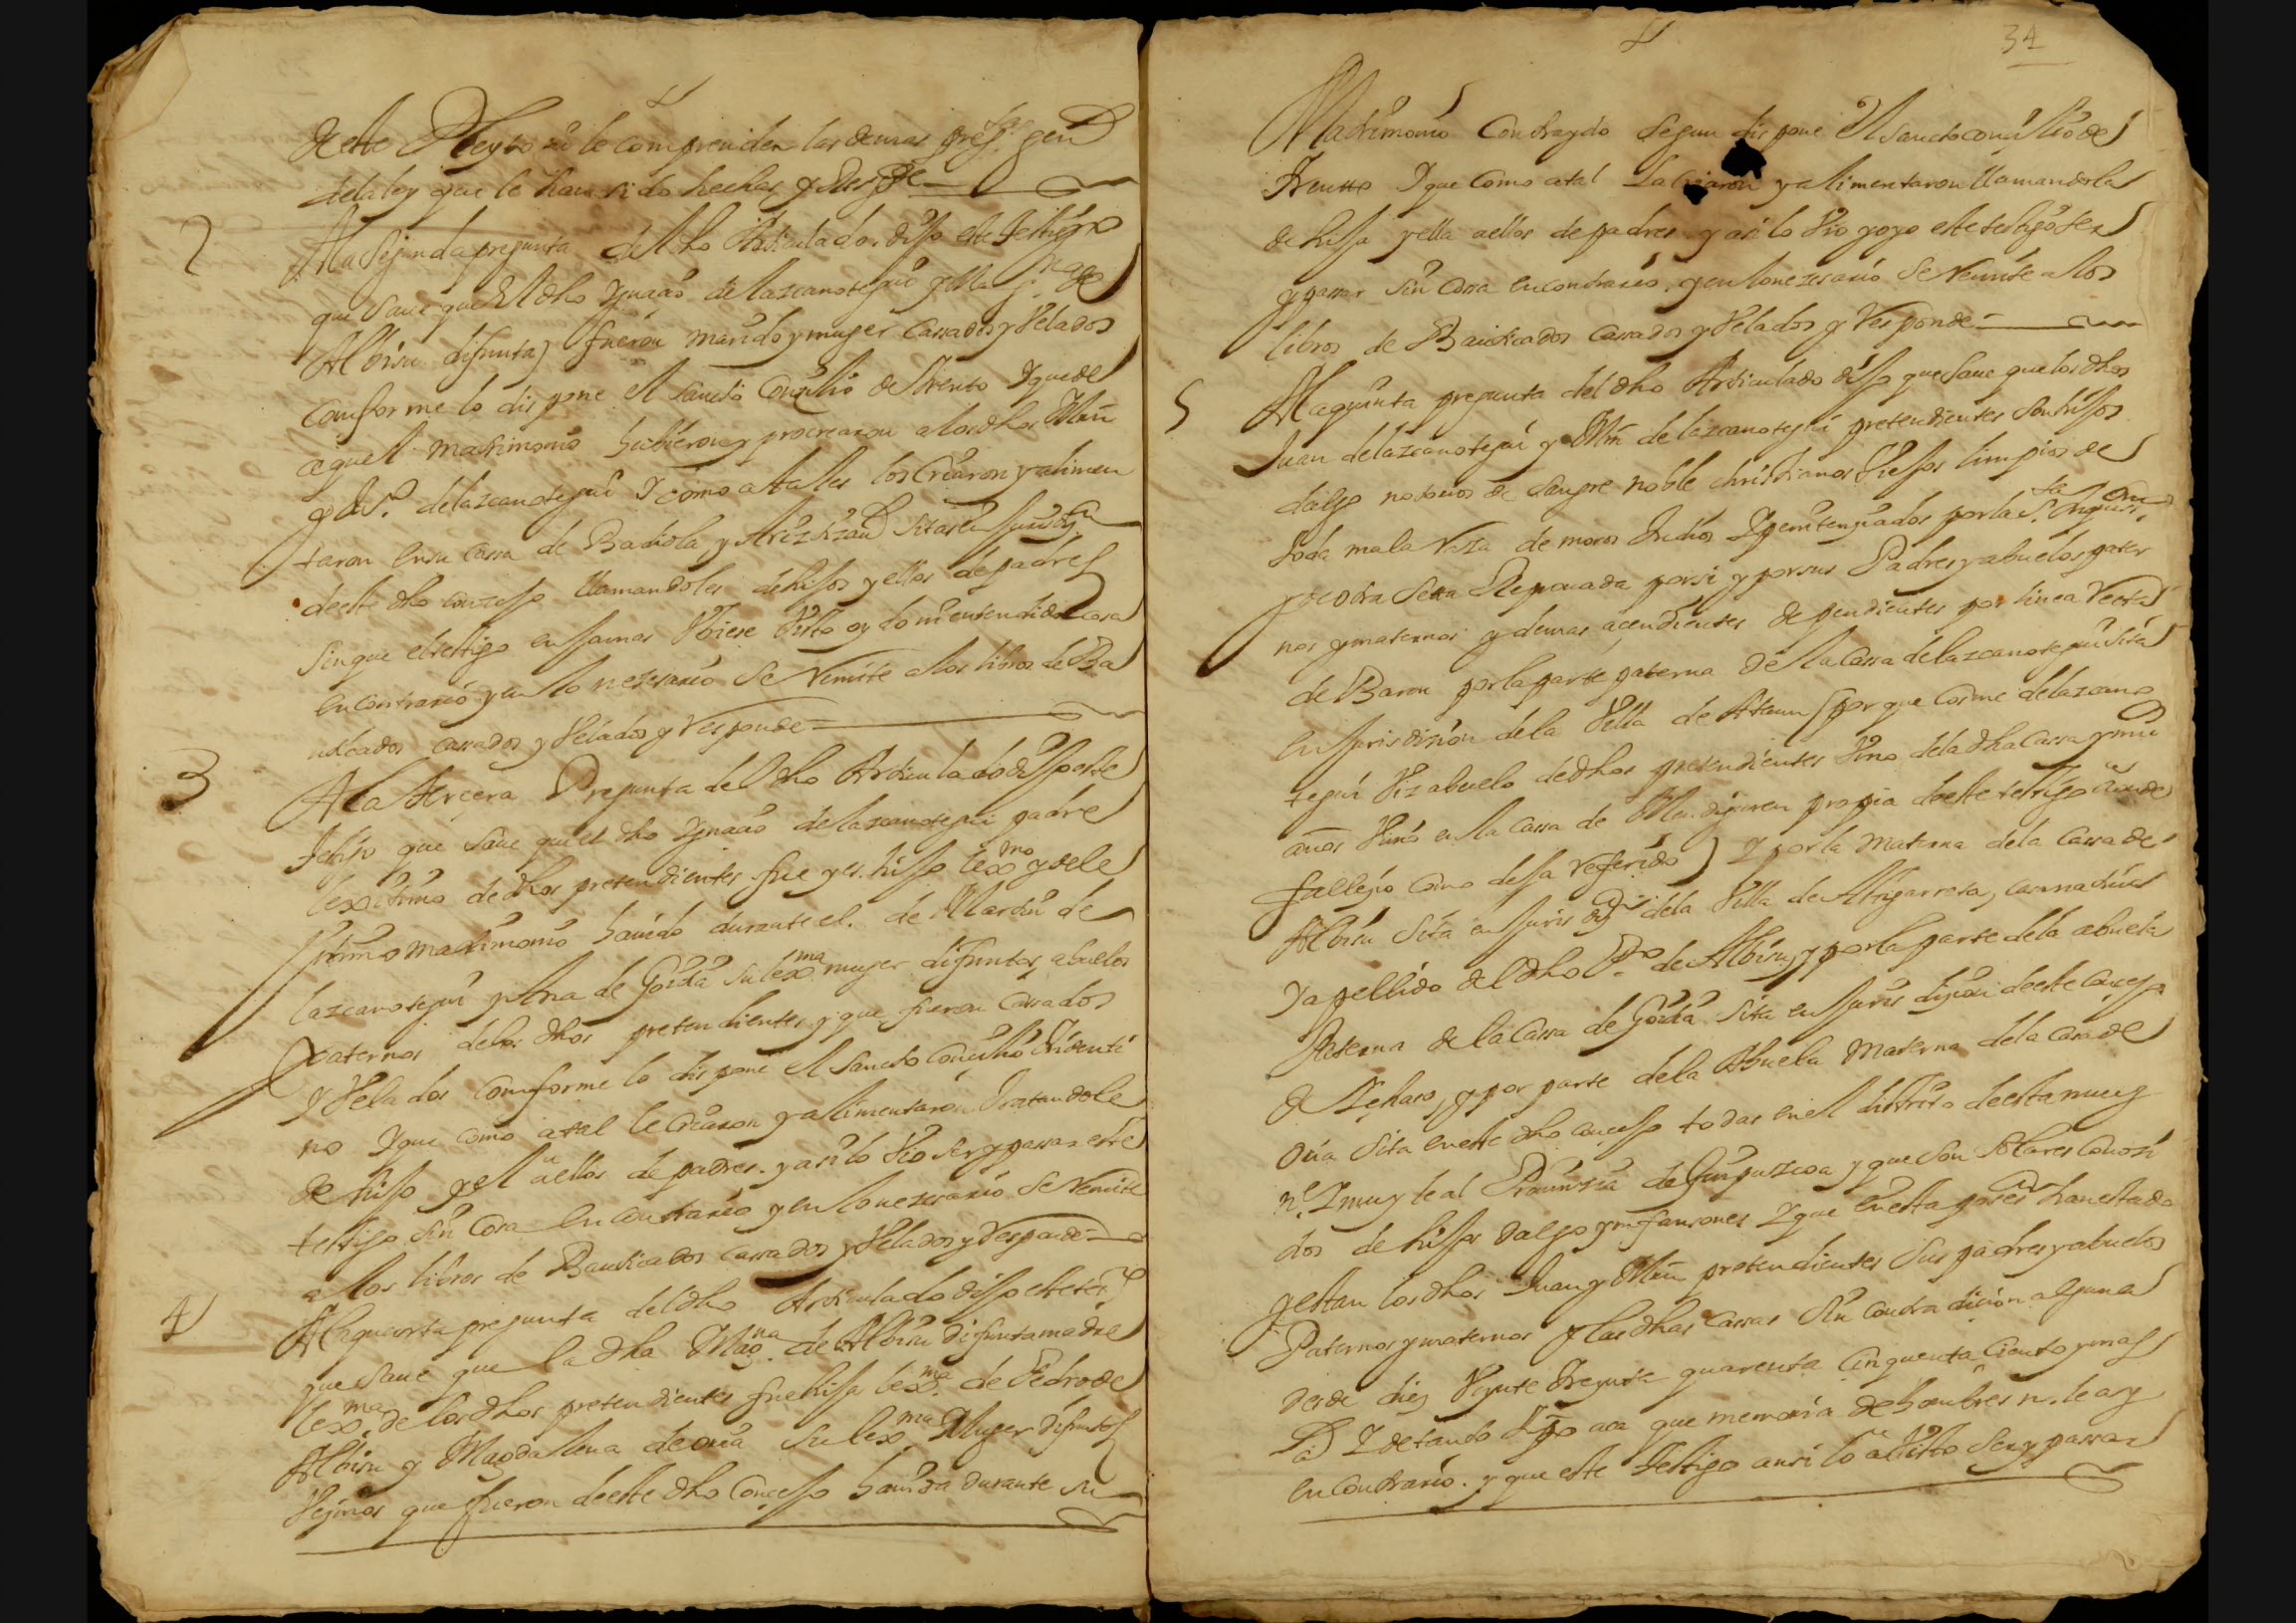 deste Pleyto ni le comprenden las demas preg.s gen.s
de la ley que le han sido hechas y Respde
2
A la segunda pregunta del dho Articulado dijo este testigo
que save que el dho Ygnaçio de lazcanotegui y Mag.na de
Albisu difunta fueron marido y muger cassados y velados
conforme lo dispone el sancto Conzilio de Trento Y que de
aquel matrimonio hubieron y procrearon a los dhos Mrn
y Ju.o de lazcanotegui Y como a tales los criaron y alimen
taron en su cassa de Badiola y Ariztizaual sitas en jurisd.on
deeste dho conzejo llamandoles de hijos y ellos de padres
sin que el testigo en jamas Vbiese Visto oydo ni entendido cosa
en contrario y en lo nezesario se Remite a los libros de Ba
utizados cassados y Velados y Responde=
3
A la terçera Pregunta del dho Articulado dijo este
testigo que save que el dho Ygnaçio de lazcanotegui padre
lexitimo de dhos pretendientes fue y es hijo lexmo y de le
jitimo matrimonio havido durante el. de Martin de
lazcanotegui y Ana de Goiza su lexma muger difuntos abuelos
paternos de los dhos pretendientes y que fueron cassados
Y Velados conforme lo dispone el sancto conçilio tridenti
no Y que como a tal le criaron y alimentaron tratandole
de hijo y el a ellos de padres. y asi lo vio ser y passar este
testigo sin cosa en contrario y en lo nezesario se Remite
a los libros de Bautizados cassados y Velados y Responde=
4
A la quarta pregunta del dho Articulado dijo este tes.o
que save que la dha Mag.na de Albisu difunta madre
lexma de los dhos pretendientes fue hija lexma de Pedro de
Albisu y Magdalena de oria su lexma Muger difuntos
Veçinos que fueron deeste dho Conçejo havida durante su
34
Matrimonio Contraydo segun dispone el sancto conçilio de
Trentto Y que como a tal la criaron y alimentaron llamandola
de hija y ella a ellos de padres y asi lo Vio y oyo este testigo ser
y passar sin cossa en contrario. y en lo nezesario se Remite a los
libros de Bautizados cassados y Velados y Responde=
5
A la quinta pregunta del dho Articulado dijo que save que los dhos
Juan de lazcanotegui y Mrn de lazcanotegui pretendientes son hijos
dalgo notorios de sangre noble christianos Viejos limpios de
toda mala Raza de moros Judios Y penitençiados por la S.ta Inquisi.on
y de otra secta Reprouada por si y por sus Padres y abuelos pater
nos y maternos y demas açendientes dependientes por linea Recta
de Baron por la parte paterna de la cassa de lazcanotegui sita
en jurisdizion de la Villa de Ataun (por que cosme de lazcano
tegui Vizabuelo de dhos pretendientes Vino de la dha cassa y mu
años Viuio en la cassa de Mendiguren propia deeste testigo donde
falleçio como deja referido) Y por la materna de la cassa de
Albisu sita en jurisdi.on de la Villa de Alçigarreta, casa natiua
Y apellido del dho P.o de Albisu, y por la parte de la abuela
Paterna de la Cassa de Goiza sita en jurisdiçion deeste Conçejo
y por parte de la Abuela Materna de la casa de
Oria sita en este dho conçejo todas en el distrito de esta muy
n.e Y muy leal Prouinzia de Guipuzcoa y que son solares conozi
dos de hijos dalgo ynfansones Y que en esta poses.on han estado
y estan los dhos Juan y Mrn pretendientes sus padres y abuelos
Paternos y maternos y las dhas cassas sin contradicion alguna
desde diez Veynte treynta quarenta cinquenta ciento y mas
a.s Y de tanto t.po aca que memoria de hombres n. le ay
en contrario. y que este testigo ansi lo a visto ser y passar